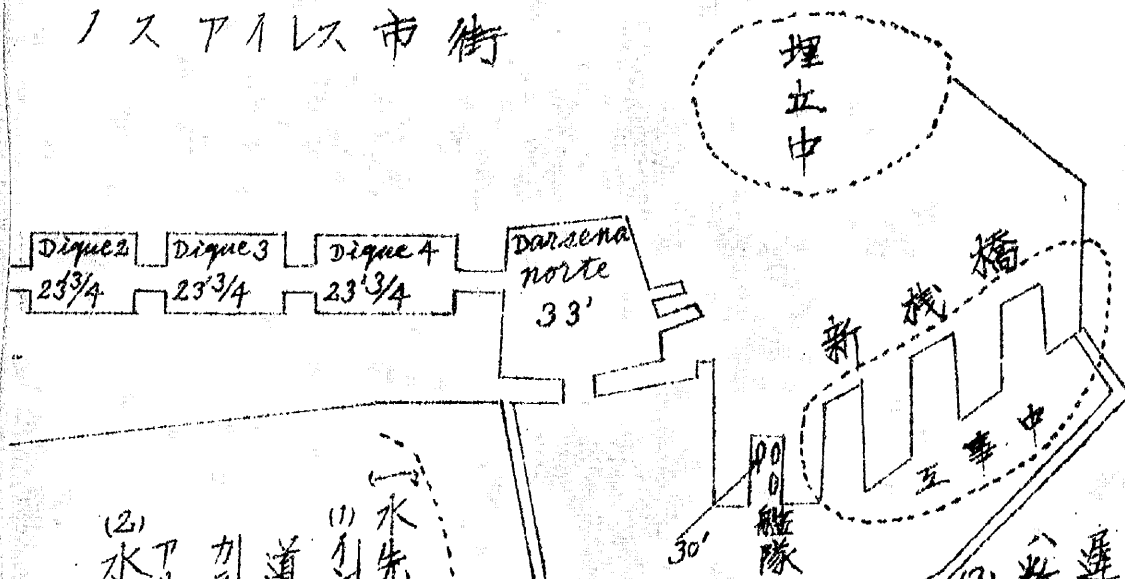 ノスアイレス市街
埋立中
Dique2
23'3/4
Dique3
23'3/4
Dique 4
23'3/4
Darsena
norte
33'
新桟橋
工事中
艦隊
30'
(一)水先
(1)
道
(2)
水ア